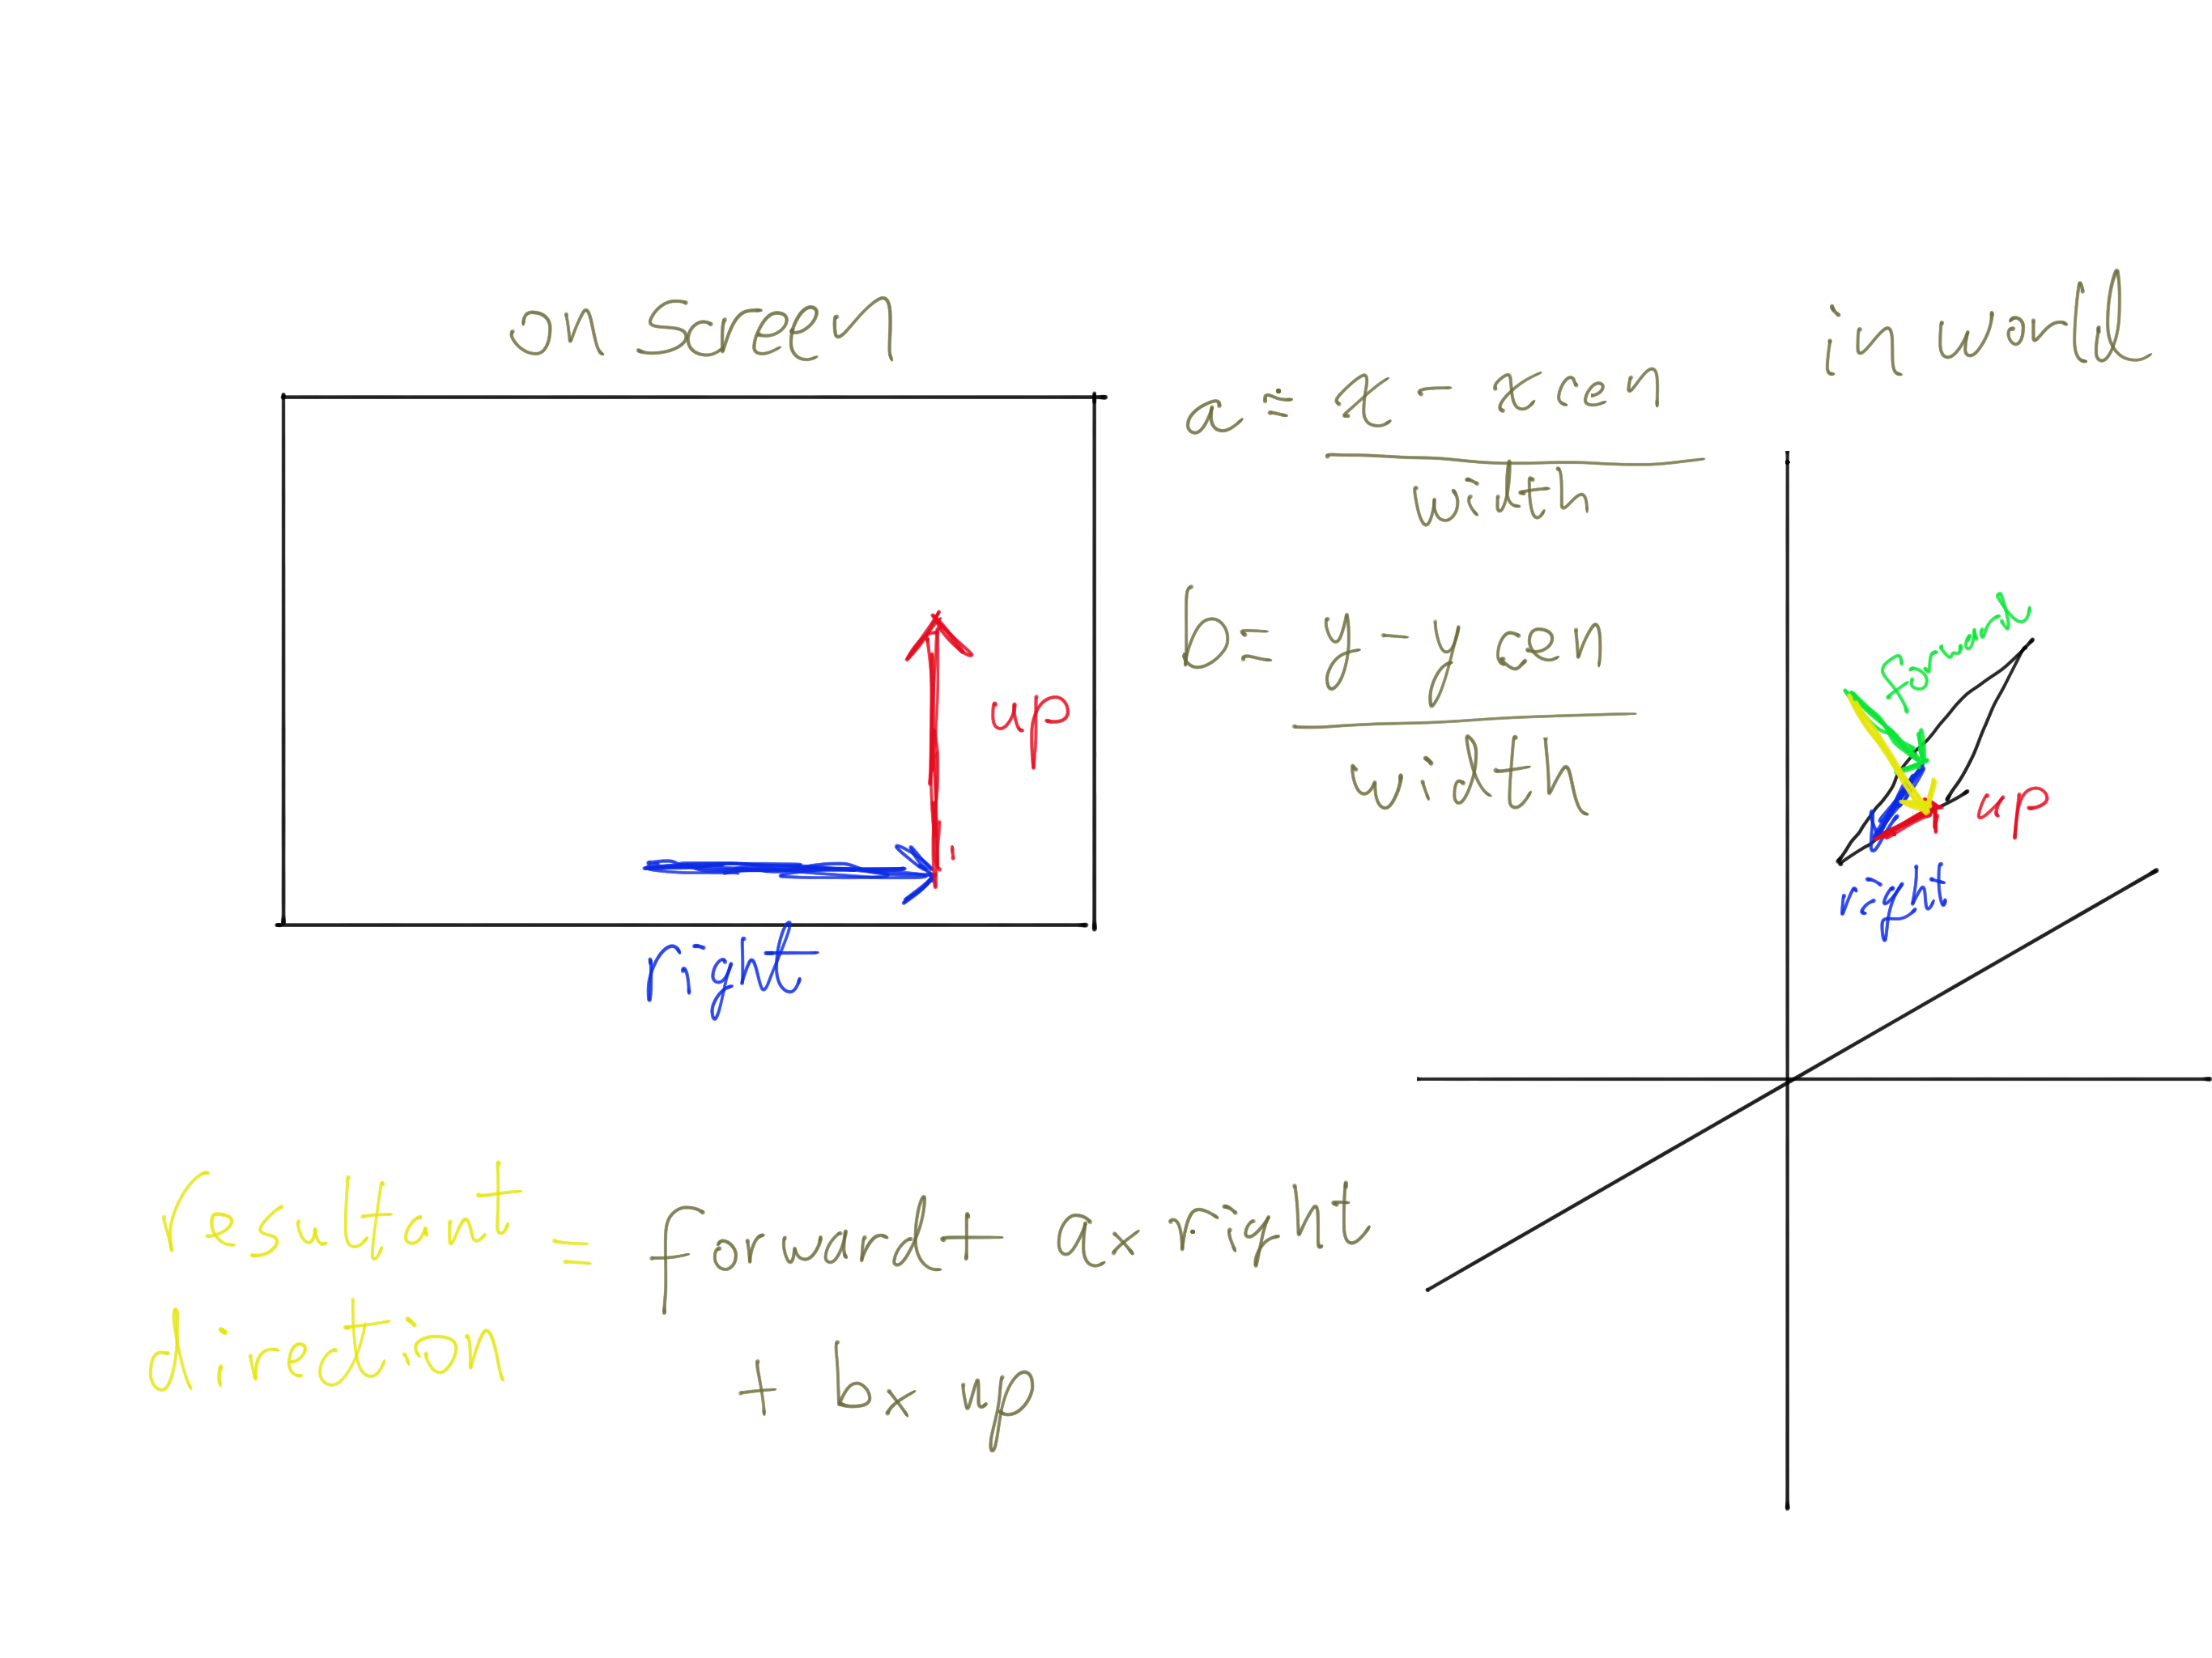 on screen
in world
a = x - xcen
width
b = y - ycen
width
up
right
forward
up
right
resultant = forward + a x right
direction
+ b x up